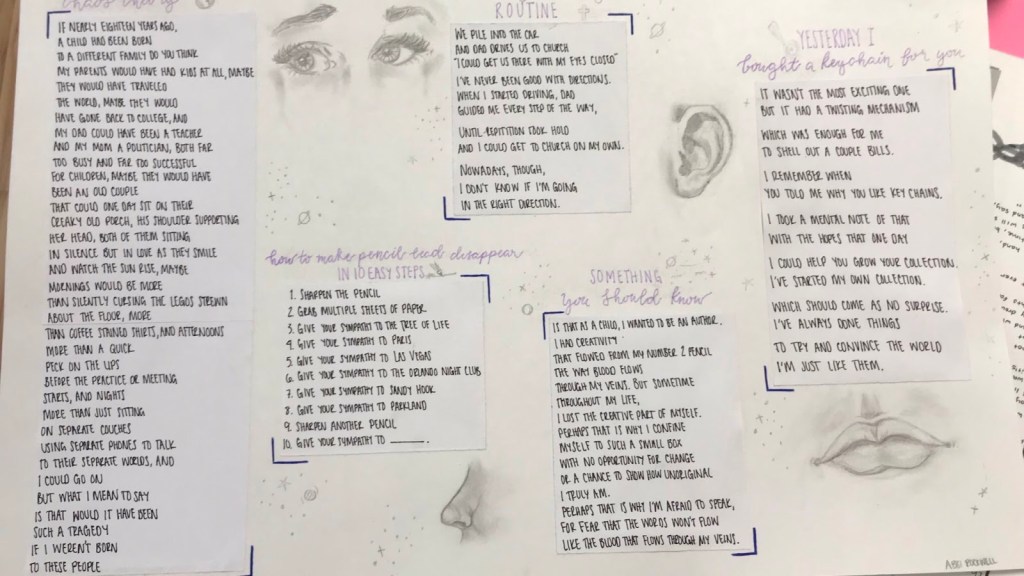 chaos theory
IF NEARLY EIGHTEEN YEARS AGO,
A CHILD HAD BEEN BORN
TO A DIFFERENT FAMILY DO YOU THINK
MY PARENTS WOULD HAVE HAD KIDS AT ALL, MAYBE
THEY WOULD HAVE TRAVELED
THE WORLD, MAYBE THEY WOULD
HAVE GONE BACK TO COLLEGE, AND
MY DAD COULD HAVE BEEN A TEACHER
AND MY MOM A POLITICIAN, BOTH FAR
TOO BUSY AND FAR TOO SUCCESSFUL
FOR CHILDREN, MAYBE THEY WOULD HAVE
BEEN AN OLD COUPLE
THAT COULD ONE DAY SIT ON THEIR
CREAKY OLD PORCH, HIS SHOULDER SUPPORTING
HER HEAD, BOTH OF THEM SITTING
IN SILENCE BUT IN LOVE AS THEY SMILE
AND WATCH THE SUN RISE, MAYBE
MORNINGS WOULD BE MORE
THAN SILENTLY CURSING THE LEGOS STREWN
ABOUT THE FLOOR, MORE
THAN COFFEE STAINED SHIRTS, AND AFTERNOONS
MORE THAN A QUICK
PECK ON THE LIPS
BEFORE THE PRACTICE OR MEETING
STARTS, AND NIGHTS
MORE THAN JUST SITTING
ON SEPARATE COUCHES
USING SEPARATE PHONES TO TALK
TO THEIR SEPARATE WORLDS, AND
I COULD GO ON
BUT WHAT I MEAN TO SAY
IS THAT WOULD IT HAVE BEEN
SUCH A TRAGEDY
IF I WEREN'T BORN
TO THESE PEOPLE
ROUTINE
WE PILE INTO THE CAR
AND DAD DRIVES US TO CHURCH
"I COULD GET US THERE WITH MY EYES CLOSED"
I'VE NEVER BEEN GOOD WITH DIRECTIONS.
WHEN I STARTED DRIVING, DAD
GUIDED ME EVERY STEP OF THE WAY,
UNTIL REPITITION TOOK HOLD
AND I COULD GET TO CHURCH ON MY OWN.
NOWADAYS, THOUGH,
I DON'T KNOW IF I'M GOING
IN THE RIGHT DIRECTION.
how to make pencil lead disappear
IN 10 EASY STEPS
1. SHARPEN THE PENCIL
2. GRAB MULTIPLE SHEETS OF PAPER
3. GIVE YOUR SYMPATHY TO THE TREE OF LIFE
4. GIVE YOUR SYMPATHY TO PARIS
5. GIVE YOUR SYMPATHY TO LAS VEGAS
6. GIVE YOUR SYMPATHY TO THE ORLANDO NIGHT CLUB
7. GIVE YOUR SYMPATHY TO SANDY HOOK
8. GIVE YOUR SYMPATHY TO PARKLAND
9. SHARPEN ANOTHER PENCIL
10. GIVE YOUR SYMPATHY TO ______.
SOMETHING
you should know
IS THAT AS A CHILD, I WANTED TO BE AN AUTHOR.
I HAD CREATIVITY
THAT FLOWED FROM MY NUMBER 2 PENCIL
THE WAY BLOOD FLOWS
THROUGH MY VEINS. BUT SOMETIME
THROUGHOUT MY LIFE,
I LOST THE CREATIVE PART OF MYSELF.
PERHAPS THAT IS WHY I CONFINE
MYSELF TO SUCH A SMALL BOX
WITH NO OPPORTUNITY FOR CHANGE
OR A CHANCE TO SHOW HOW UNORIGINAL
I TRULY AM.
PERHAPS THAT IS WHY I'M AFRAID TO SPEAK,
FOR FEAR THAT THE WORDS WON'T FLOW
LIKE THE BLOOD THAT FLOWS THROUGH MY VEINS.
YESTERDAY I
bought a keychain for you
IT WASN'T THE MOST EXCITING ONE
BUT IT HAD A TWISTING MECHANISM
WHICH WAS ENOUGH FOR ME
TO SHELL OUT A COUPLE BILLS.
I REMEMBER WHEN
YOU TOLD ME WHY YOU LIKE KEY CHAINS.
I TOOK A MENTAL NOTE OF THAT
WITH THE HOPES THAT ONE DAY
I COULD HELP YOU GROW YOUR COLLECTION.
I'VE STARTED MY OWN COLLECTION.
WHICH SHOULD COME AS NO SURPRISE.
I'VE ALWAYS DONE THINGS
TO TRY AND CONVINCE THE WORLD
I'M JUST LIKE THEM.